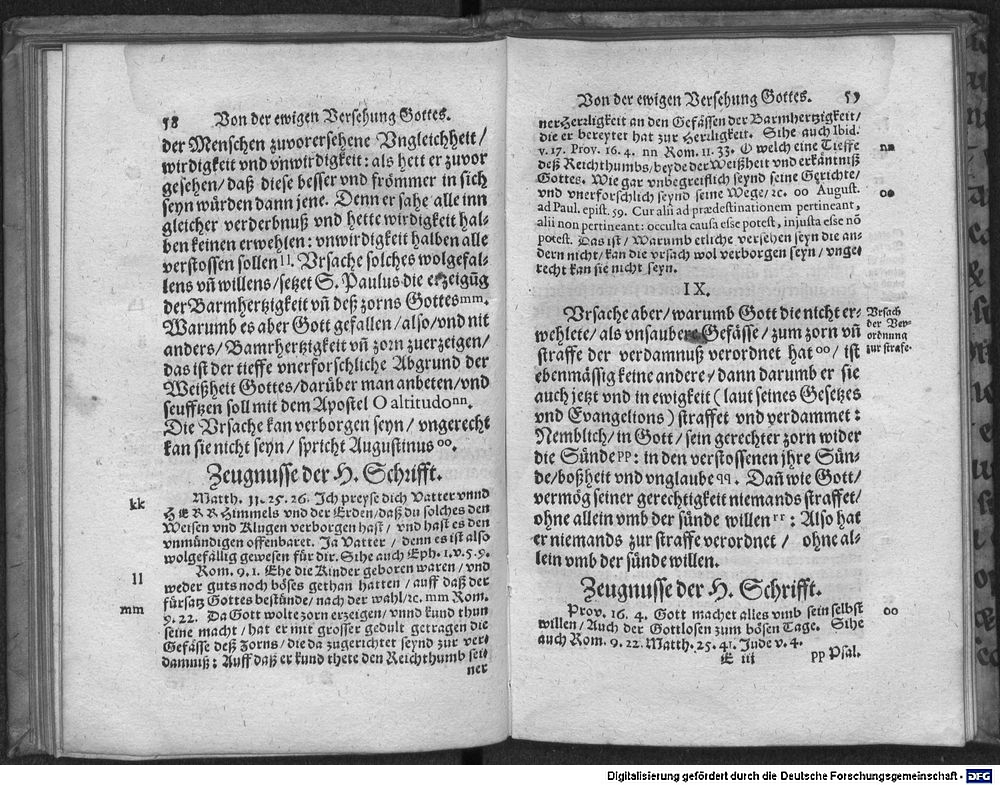 58 Von der ewigen Versehung Gottes.
der Menschen zuvorersehene Vngleichheit/
wirdigkeit vnd vnwirdigkeit: als hett er zuvor
gesehen/daß diese besser vnd frömmer in sich
seyn würden dann jene. Denn er sahe alle inn
gleicher verderbnuß vnd hette wirdigkeit hal-
ben keinen erwehlen: vnwirdigkeit halben alle
verstossen sollen ll. Vrsache solches wolgefal-
lens vñ willens/setzet S. Paulus die erzeigũg
der Barmhertzigkeit vñ deß zorns Gottes mm.
Warumb es aber Gott gefallen/also/vnd nit
anders/Bamrhertzigkeit vñ zorn zuerzeigen/
das ist der tieffe vnerforschliche Abgrund der
Weißheit Gottes/darüber man anbeten/vnd
seufftzen soll mit dem Apostel O altitudo nn.
Die Vrsache kan verborgen seyn/vngerecht
kan sie nicht seyn/spricht Augustinus oo.
Zeugnusse der H. Schrifft.
kk Matth. 11. 25. 26. Ich preyse dich Vatter vnnd
HERR Himmels vnd der Erden/daß du solches den
Weisen vnd Klugen verborgen hast/vnd hast es den
vnmündigen offenbaret. Ja Vatter/denn es ist also
wolgefällig gewesen für dir. Sihe auch Eph. 1. v. 5. 9.
ll Rom. 9. 1. Ehe die Kinder geboren waren/vnd
weder guts noch böses gethan hatten/auff daß der
mm fürsatz Gottes bestünde/nach der wahl/ꝛc. mm Rom.
9. 22. Da Gott wolte zorn erzeigen/vnnd kund thun
seine macht/hat er mit grosser gedult getragen die
Gefässe deß Zorns/die da zugerichtet seynd zur ver-
damnuß: Auff daß er kund thete den Reichthumb sei-
ner
Von der ewigen Versehung Gottes. 59
ner Herꝛligkeit an den Gefässen der Barmhertzigkeit/
die er bereytet hat zur Herꝛligkeit. Sihe auch Ibid.
v. 17. Prov. 16. 4. nn Rom. 11. 33. O welch eine Tieffe nn
deß Reichthumbs/beyde der Weißheit vnd erkäntniß
Gottes. Wie gar vnbegreiflich seynd seine Gerichte/
vnd vnerforschlich seynd seine Wege/ꝛc. oo August. oo
ad Paul. epist. 59. Cur alii ad prædestinationem pertineant,
alii non pertineant: occulta causa esse potest, injusta esse nõ
potest. Das ist/Warumb etliche versehen seyn die an-
dern nicht/kan die vrsach wol verborgen seyn/vnge-
recht kan sie nicht seyn.
IX.
Vrsache aber/warumb Gott die nicht er-
wehlete/als vnsaubere Gefässe/zum zorn vñ
straffe der verdamnuß verordnet hat oo/ist
ebenmässig keine andere/dann darumb er sie
auch jetzt vnd in ewigkeit (laut seines Gesetzes
vnd Evangelions) straffet vnd verdammet:
Nemblich/in Gott/sein gerechter zorn wider
die Sünde pp: in den verstossenen jhre Sün-
de/boßheit vnd vnglaube qq. Dañ wie Gott/
vermög seiner gerechtigkeit niemands straffet/
ohne allein vmb der sünde willen rr: Also hat
er niemands zur straffe verordnet/ohne al-
lein vmb der sünde willen.
Vrsach
der Ver-
ordnung
zur strafe.
Zeugnusse der H. Schrifft.
Prov. 16. 4. Gott machet alles vmb sein selbst oo
willen/Auch der Gottlosen zum bösen Tage. Sihe
auch Rom. 9. 22. Matth. 25. 41. Jude v. 4.
E iii pp Psal.
Digitalisierung gefördert durch die Deutsche Forschungsgemeinschaft - DFG